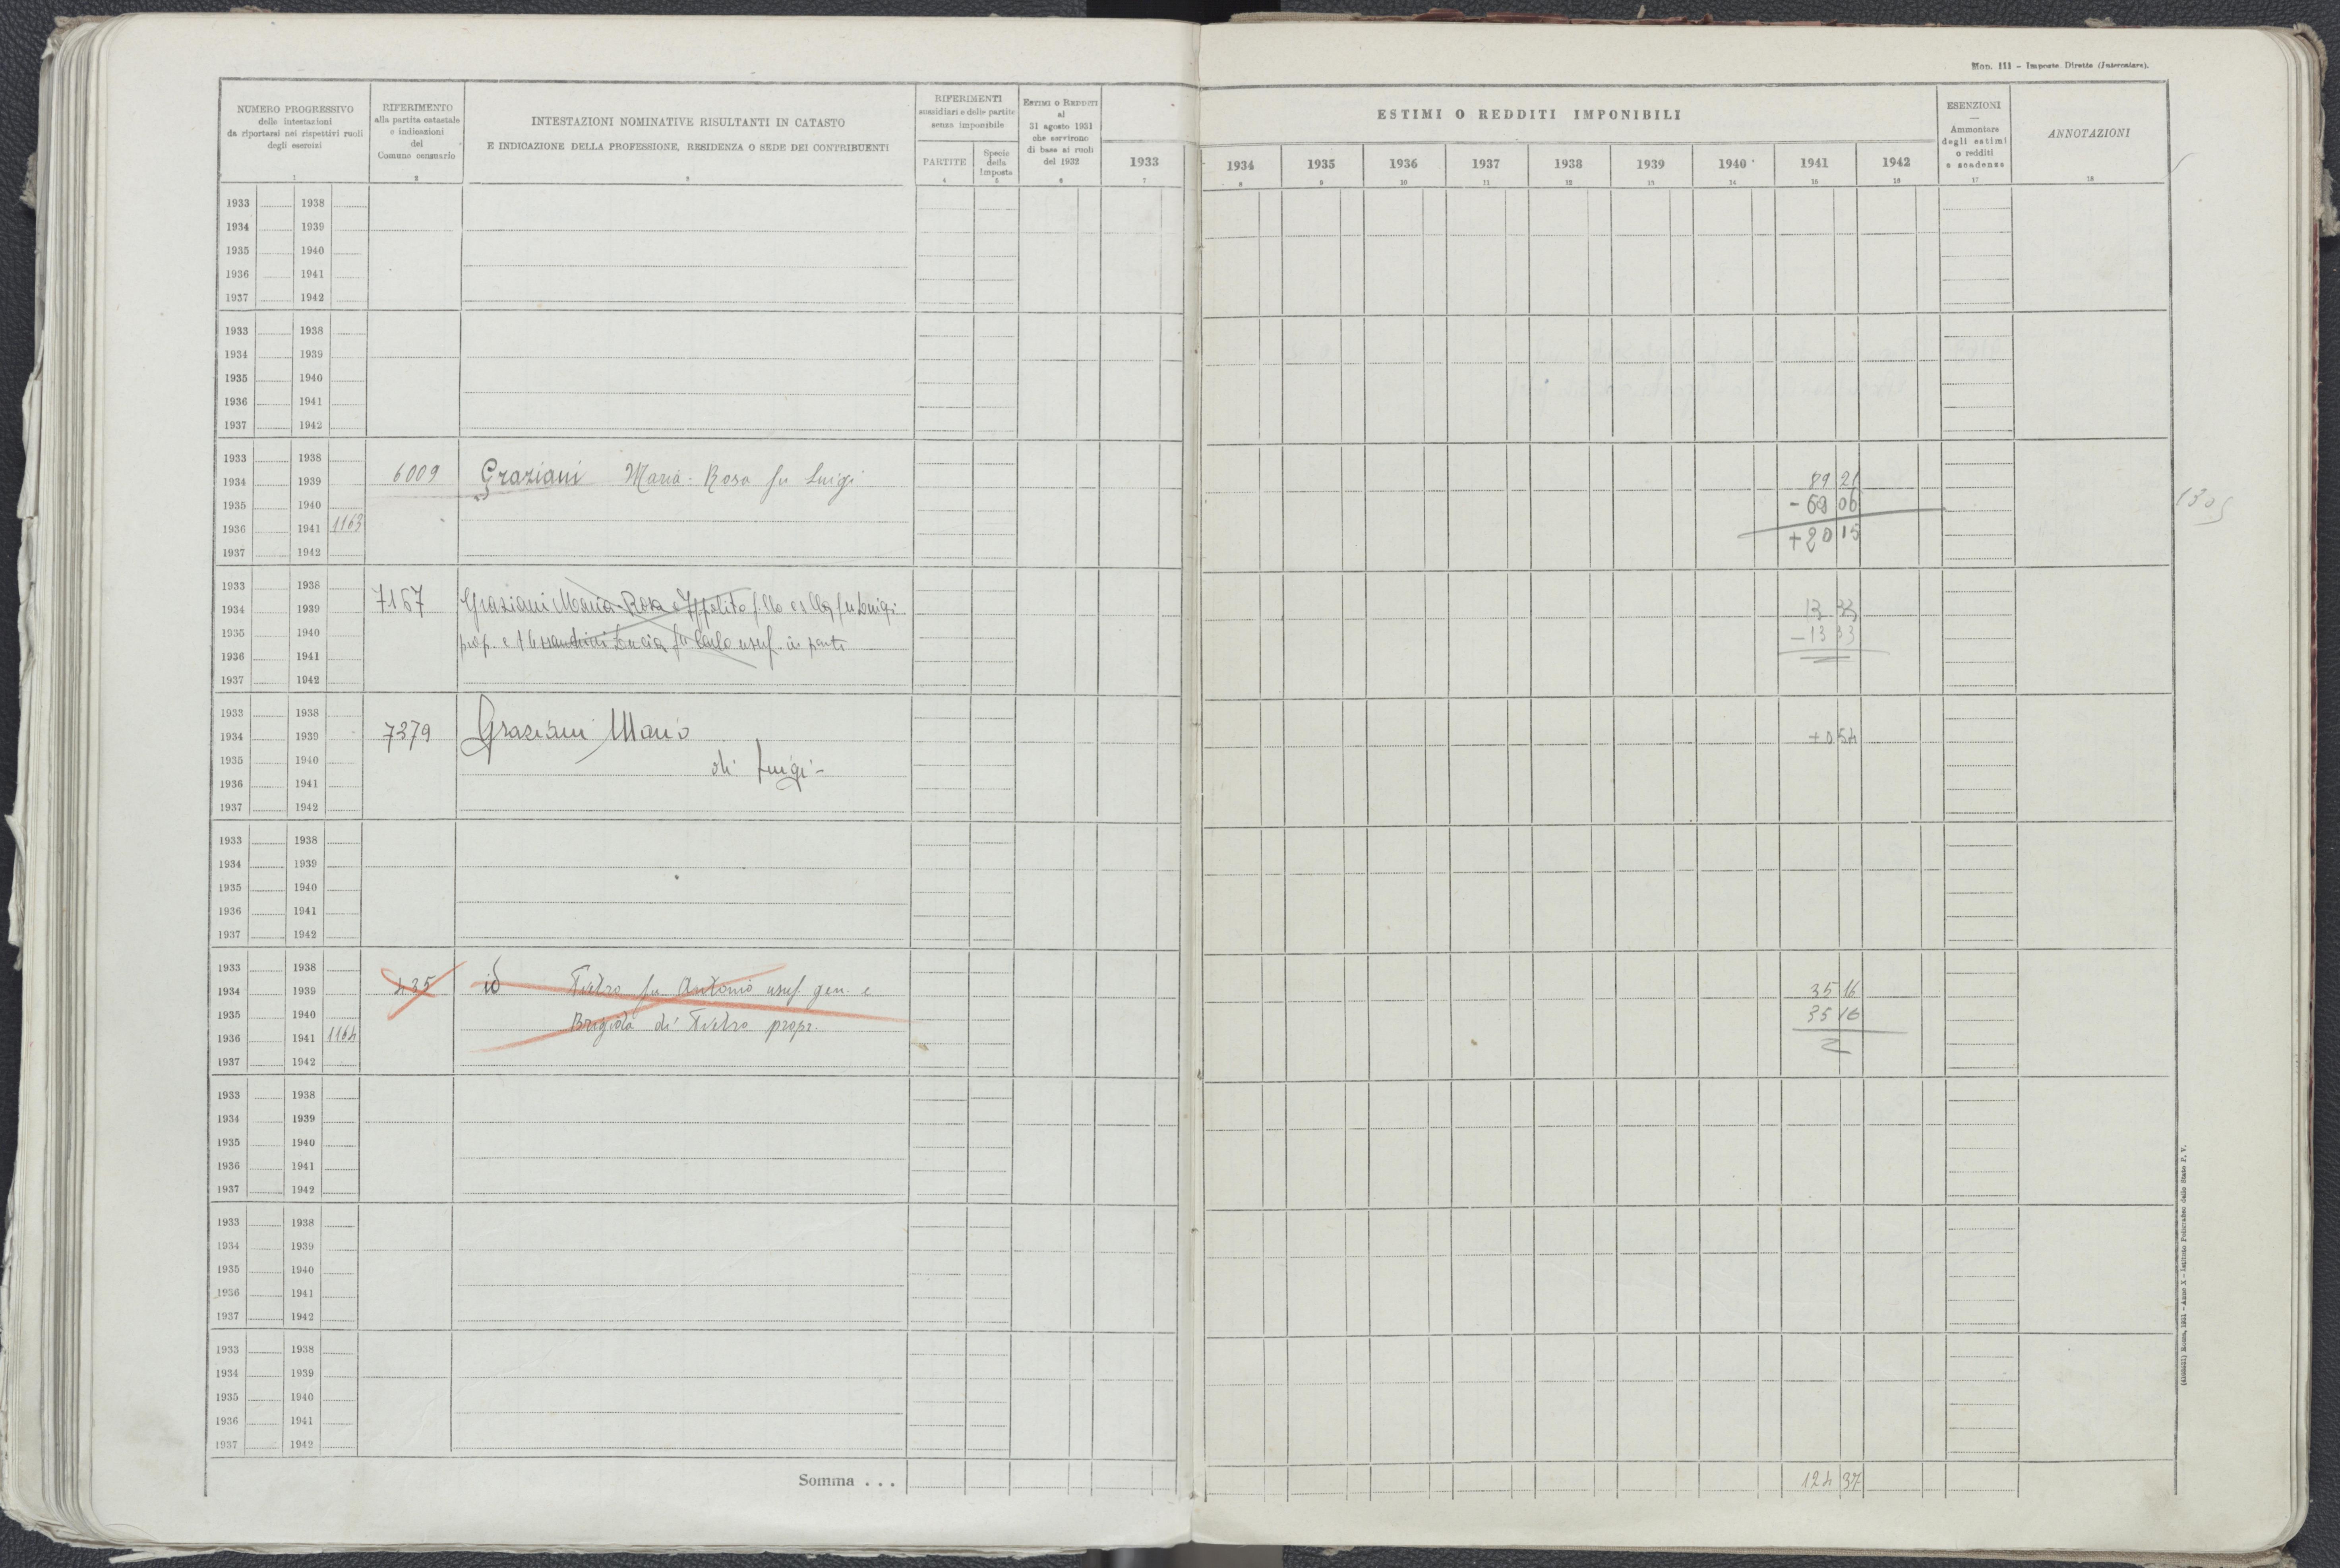 Mod. 111 – Imposte Dirette (Intercalare).
NUMERO PROGRESSIVO
delle intestazioni
da riportarsi nei rispettivi ruoli
degli esercizi
1
RIFERIMENTO
alla partita catastale
e indicazioni
del
Comune censuario
2
INTESTAZIONI NOMINATIVE RISULTANTI IN CATASTO
E INDICAZIONE DELLA PROFESSIONE, RESIDENZA O SEDE DEI CONTRIBUENTI
3
RIFERIMENTI
sussidiari e delle partite
senza imponibile
PARTITE
4
Specie
della
Imposta
5
ESTIMI O REDDITI
al
31 agosto 1931
che servirono
di base ai ruoli
del 1932
6
1933
7
ESTIMI O REDDITI IMPONIBILI
1934 1935 1936 1937 1938 1939 1940 1941 1942
8 9 10 11 12 13 14 15 16
ESENZIONI
—
Ammontare
degli estimi
o redditi
a scadenze
17
ANNOTAZIONI
18
1933 1938
1934 1939
1935 1940
1936 1941
1937 1942
1933 1938
1934 1939
1935 1940
1936 1941
1937 1942
1933 1938
1934 1939 6009 Graziani Maria-Rosa fu Luigi 89 21
1935 1940 - 69 06
1936 1941 1163 + 20 15
1937 1942
1933 1938
1934 1939 7167 Graziani Maria-Rosa e Ippolito f.llo e s.lla fu Luigi 13 33
1935 1940 prop. e Alessandrini Lucia fu Carlo usuf. in parte - 13 33
1936 1941
1937 1942
1933 1938
1934 1939 7379 Graziani Mario + 0 54
1935 1940 di Luigi -
1936 1941
1937 1942
1933 1938
1934 1939
1935 1940
1936 1941
1937 1942
1933 1938
1934 1939 435 id Pietro fu Antonio usuf. gen. e 35 16
1935 1940 Brigida di Pietro propr. 35 16
1936 1941 1164
1937 1942
1933 1938
1934 1939
1935 1940
1936 1941
1937 1942
1933 1938
1934 1939
1935 1940
1936 1941
1937 1942
1933 1938
1934 1939
1935 1940
1936 1941
1937 1942
Somma . . . 124 37
Roma, 1931 – Anno X – Istituto Poligrafico dello Stato P. V.